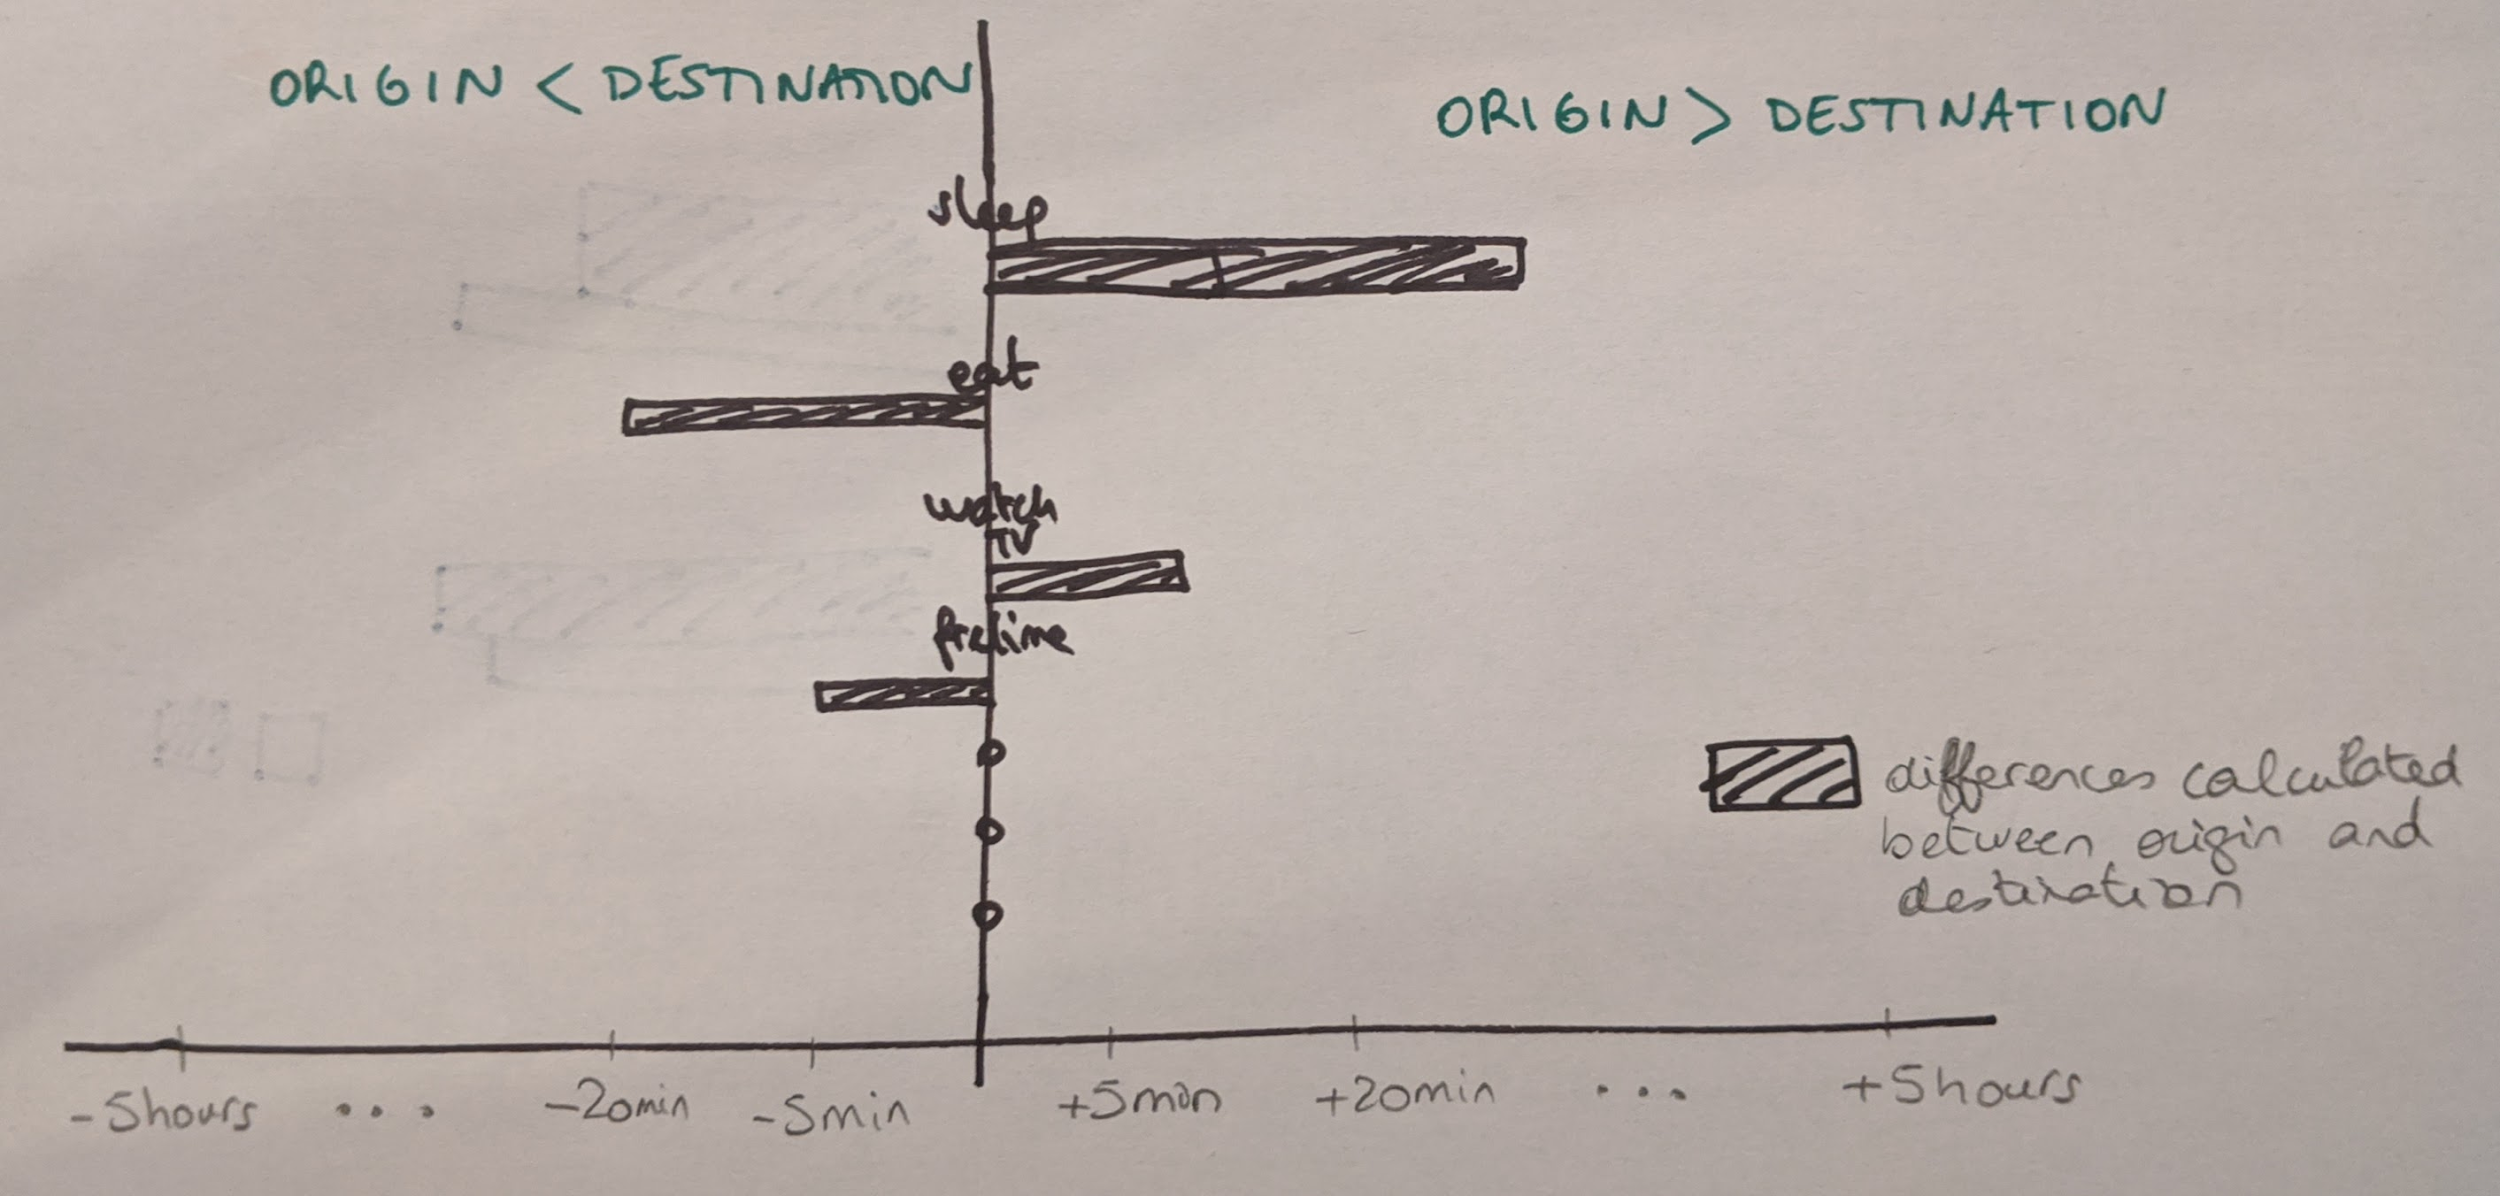 ORIGIN < DESTINATION
ORIGIN > DESTINATION
sleep
eat
watch
TV
differences calculated
between origin and
destination
-5hours ... -20min -5min +5min +20min ... +5hours